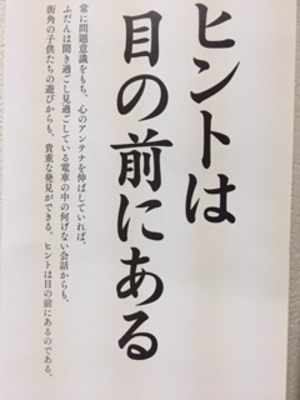 ヒントは
目の前にある
常に問題意識をもち、心のアンテナを伸ばしていれば、
ふだんは聞き過ごし見過ごしている電車の中の何げない会話からも、
街角の子供たちの遊びからも、貴重な発見ができる。ヒントは目の前にあるのである。